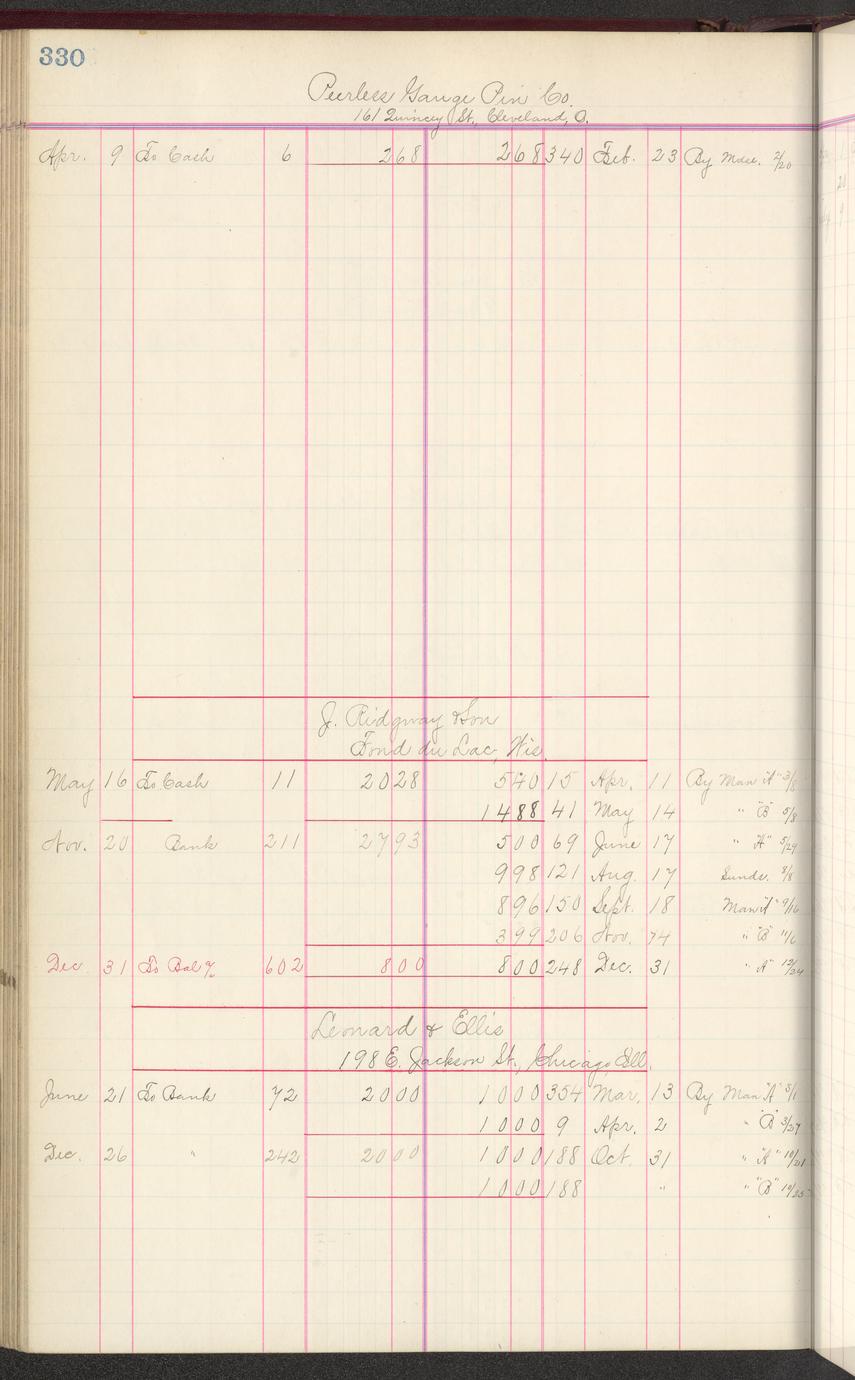 330
Peerless Gauge Pin Co.
161 Quincey St., Cleveland, O.
Apr. 9 To Cash 6 2 68 2 68 340 Feb. 23 By Mdse. 2/20
J. Ridgway & Son
Fond du Lac, Wis.
May 16 To Cash 11 20 28 5 40 15 Apr. 11 By Man "A" 3/8
14 88 41 May 14 " "B" 5/8
Nov. 20 Bank 211 27 93 5 00 69 June 17 " "A" 5/29
9 98 121 Aug. 17 Sunds. 8/8
8 96 150 Sept. 18 Man "A" 9/16
3 99 206 Nov. 74 " "B" 11/6
Dec 31 To Bal % 602 8 00 8 00 248 Dec. 31 " "A" 12/24
Leonard & Ellis
198 E. Jackson St., Chicago, Ill.
June 21 To Bank 72 20 00 10 00 354 Mar. 13 By Man "A" 3/1
10 00 9 Apr. 2 " "B" 3/27
Dec. 26 " 242 20 00 10 00 188 Oct. 31 " "A" 10/21
10 00 188 " " "B" 10/25